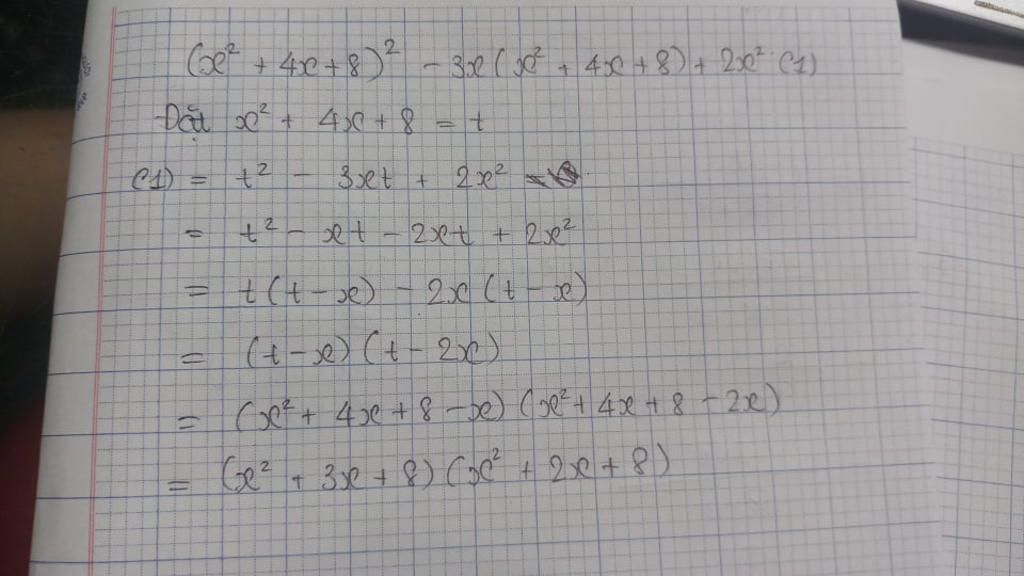 (x² + 4x + 8)² - 3x(x² + 4x + 8) + 2x² (1)
Đặt x² + 4x + 8 = t
(1) = t² - 3xt + 2x²
= t² - xt - 2xt + 2x²
= t(t - x) - 2x(t - x)
= (t - x)(t - 2x)
= (x² + 4x + 8 - x)(x² + 4x + 8 - 2x)
= (x² + 3x + 8)(x² + 2x + 8)